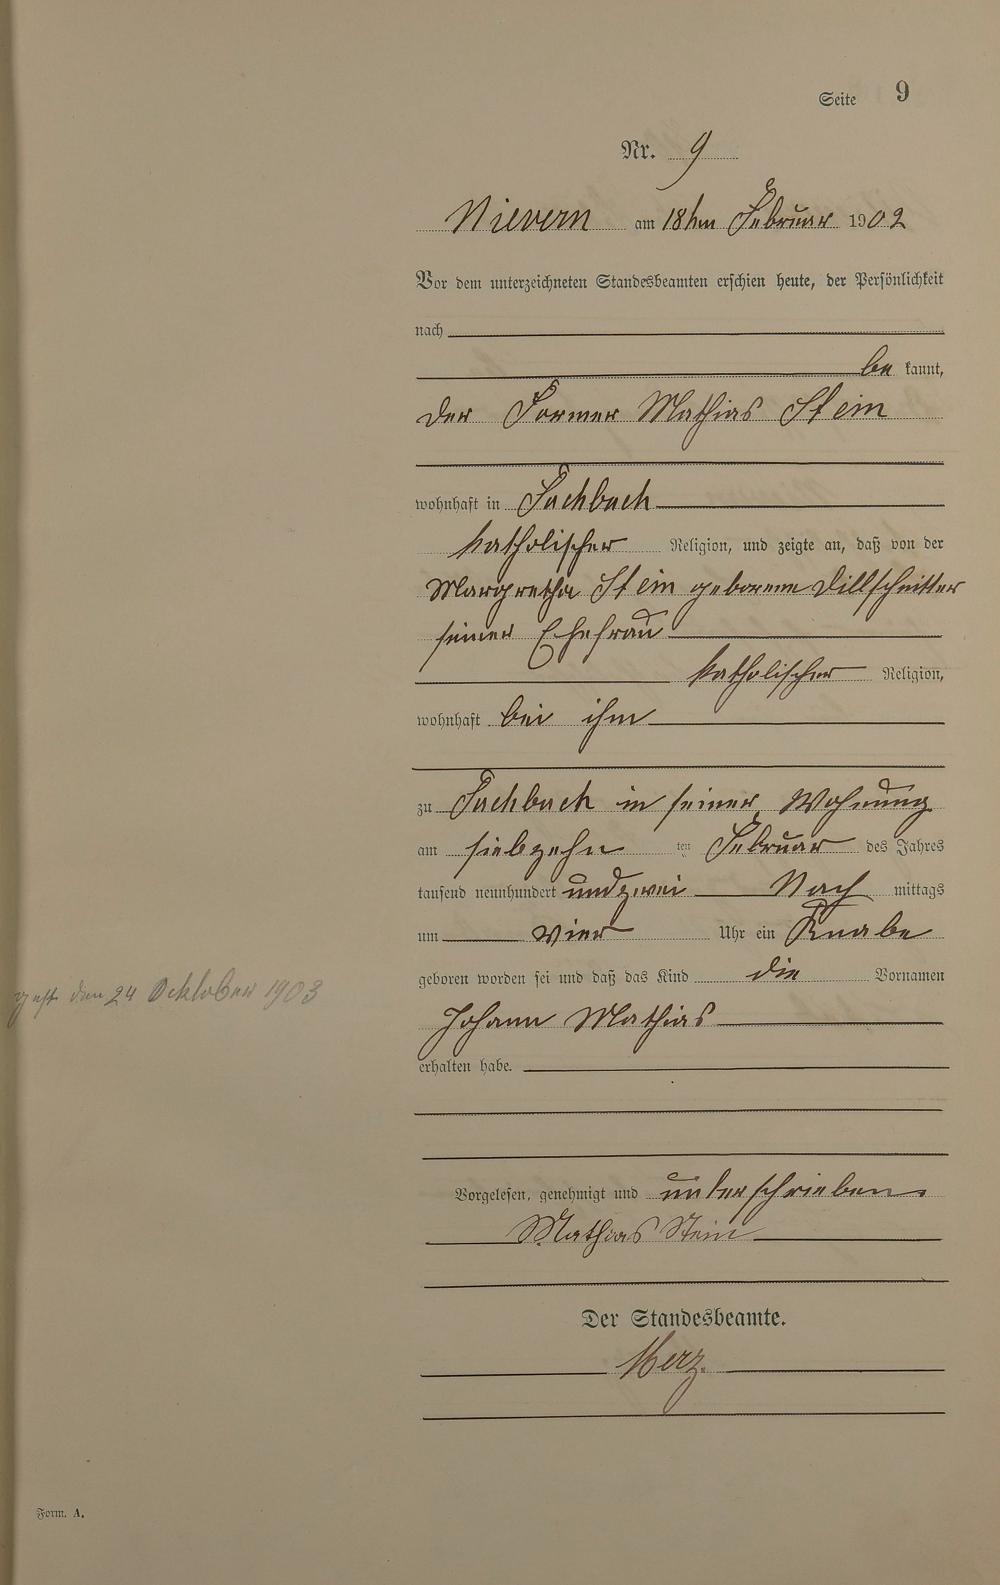 Seite 9
Nr. 9
Nievern am 18ten Februar 1902
Vor dem unterzeichneten Standesbeamten erschien heute, der Persönlichkeit
nach
be kannt,
der Former Mathias Stein
wohnhaft in Fachbach
katholischer Religion, und zeigte an, daß von der
Margretha Stein geborene Dillschnitter
seiner Ehefrau
katholischer Religion,
wohnhaft bei ihm
zu Fachbach in seiner Wohnung
am siebzehn ten Februar des Jahres
tausend neunhundert undzwei Nach mittags
um vier Uhr ein Knabe
geboren worden sei und daß das Kind die Vornamen
gest den 24 Ocktober 1903
Johann Mathias
erhalten habe.
Vorgelesen, genehmigt und unterschrieben.
Mathias Stein
Der Standesbeamte.
Merz.
Form. A.